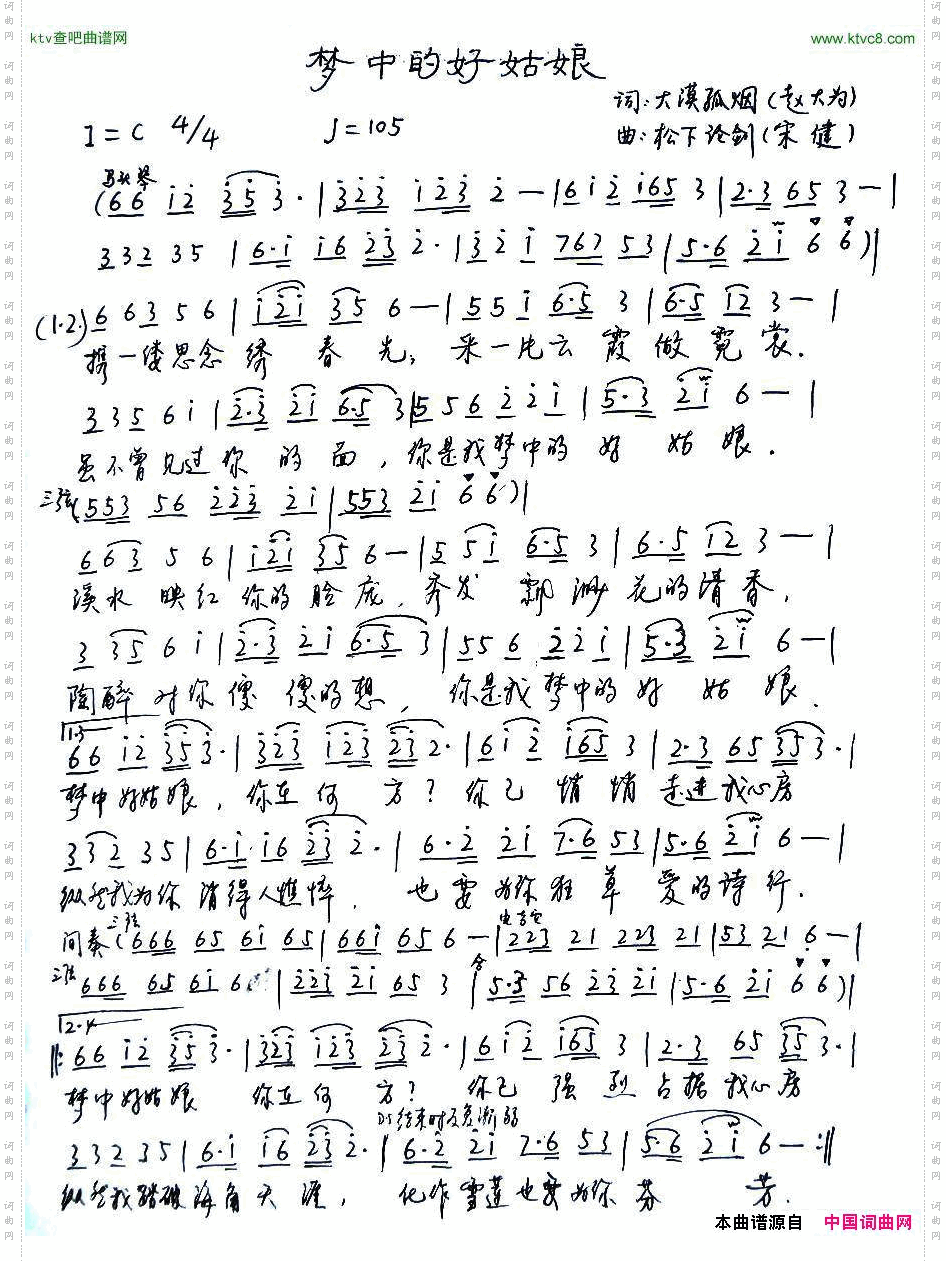 ktv查吧曲谱网
www.ktvc8.com
梦中的好姑娘
词:大漠孤烟(赵大为)
1=C 4/4 ♩=105
曲:松下论剑(宋健)
马头琴
(66 i2 353· | 323 123 2 — | 6i2 i65 3 | 2·3 653 — |
332 35 | 6·i i6 23 2· | 32i 767 53 | 5·6 2i 6 6) |
(1·2·) 6 63 5 6 | i2i 35 6 — | 55i 6·5 3 | 6·5 i2 3 — |
携一缕思念绣春光,采一片云霞做霓裳.
335 6i | 2·3 2i 6·5 3 | 5 56 22i | 5·3 2i 6 — |
虽不曾见过你的面,你是我梦中的好姑娘.
三弦(553 56 223 2i | 553 2i 6 6) |
663 5 6 | i2i 35 6 — | 5 5i 6·5 3 | 6·5 i2 3 — |
溪水映红你的脸庞,秀发飘渺花的清香,
3 35 6 i | 2·3 2i 6·5 3 | 55 6 22i | 5·3 2i 6 — |
陶醉对你傻傻的想,你是我梦中的好姑娘.
1·3
66 i2 353· | 323 i23 23 2· | 6i2 i65 3 | 2·3 65 353· |
梦中好姑娘,你在何方?你已悄悄走进我心房
332 35 | 6·i i6 23 2· | 6·2 2i 7·6 53 | 5·6 2i 6 — |
纵然我为你消得人憔悴,也要为你狂草爱的诗行.
间奏(三弦 666 65 6i 65 | 66i 65 6 — | 223 21 223 21 | 53 21 6 — |
三弦 666 65 6i 6 | 223 2i 65 3 | 合 5·3 56 23 2i | 5·6 2i 6 6) |
2·4
‖: 66 i2 353· | 323 i23 23 2· | 6i2 i65 3 | 2·3 65 353· |
梦中好姑娘 你在何方? 你已强烈占据我心房
D·S结束时反复渐弱
332 35 | 6·i i6 23 2· | 6·2 2i 7·6 53 | 5·6 2i 6 — :‖
纵然我踏破海角天涯,化作雪莲也要为你芬芳.
本曲谱源自 中国词曲网